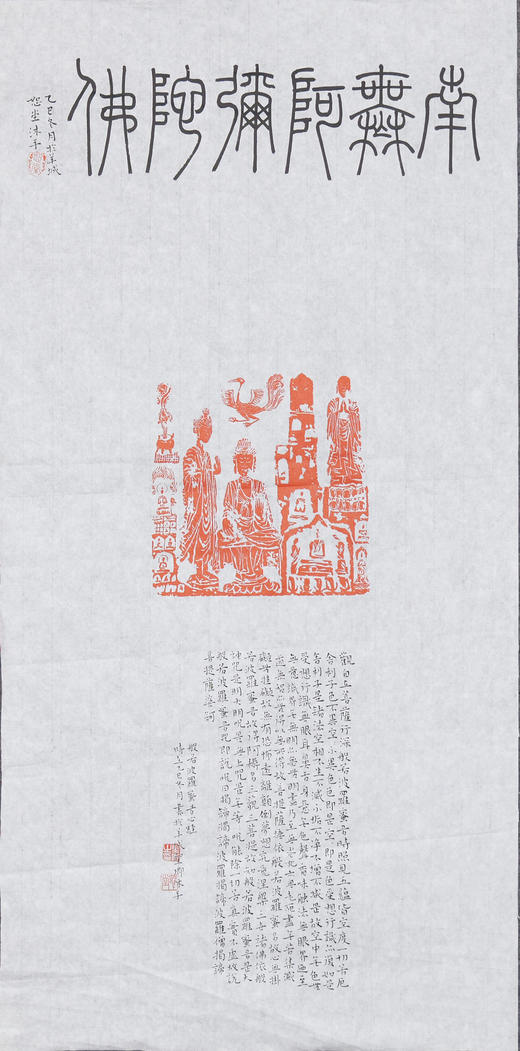 南無阿彌陀佛
乙巳冬月於羊城
沐手
觀自在菩薩行深般若波羅蜜多時照見五蘊皆空度一切苦厄
舍利子色不異空空不異色色即是空空即是色受想行識亦復如是
舍利子是諸法空相不生不滅不垢不淨不增不減是故空中無色無
受想行識無眼耳鼻舌身意無色聲香味觸法無眼界乃至
無意識界無無明亦無無明盡乃至無老死亦無老死盡無苦集滅
道無智亦無得以無所得故菩提薩埵依般若波羅蜜多故心無掛
礙無掛礙故無有恐怖遠離顛倒夢想究竟涅槃三世諸佛依般
若波羅蜜多故得阿耨多羅三藐三菩提故知般若波羅蜜多是大
神咒是大明咒是無上咒是無等等咒能除一切苦真實不虛故說
般若波羅蜜多咒即說咒曰揭諦揭諦波羅揭諦波羅僧揭諦
菩提薩婆訶
般若波羅蜜多心經
時乙巳冬月書於羊城沐手